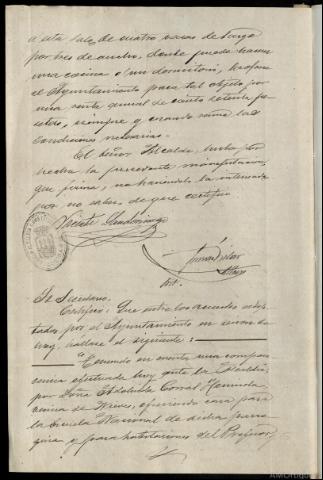 a esta sala, de cuatro varas de largo
por tres de ancho, donde pueda hacerse
una cocina o un dormitorio,
el Ayuntamiento para tal objeto por
una renta anual de ciento setenta pe-
setas, siempre y cuando reuna las
condiciones necesarias.
El Señor Alcalde, hubo por
hecha la precedente manifestación,
que firma, no haciéndolo la interesada
por no saber, de que certifico
Vicente
El Secretario.
Certifico: Que entre los acuerdos adop-
tados por el Ayuntamiento en sesion de
hoy, hállase el siguiente:
"Teniendo en cuenta una compare-
cencia efectuada hoy ante la Alcaldía,
por Doña Corral
vecina de ofreciendo casa para
la Escuela Nacional de dicha parro-
quia y para habitaciones del Profesor,